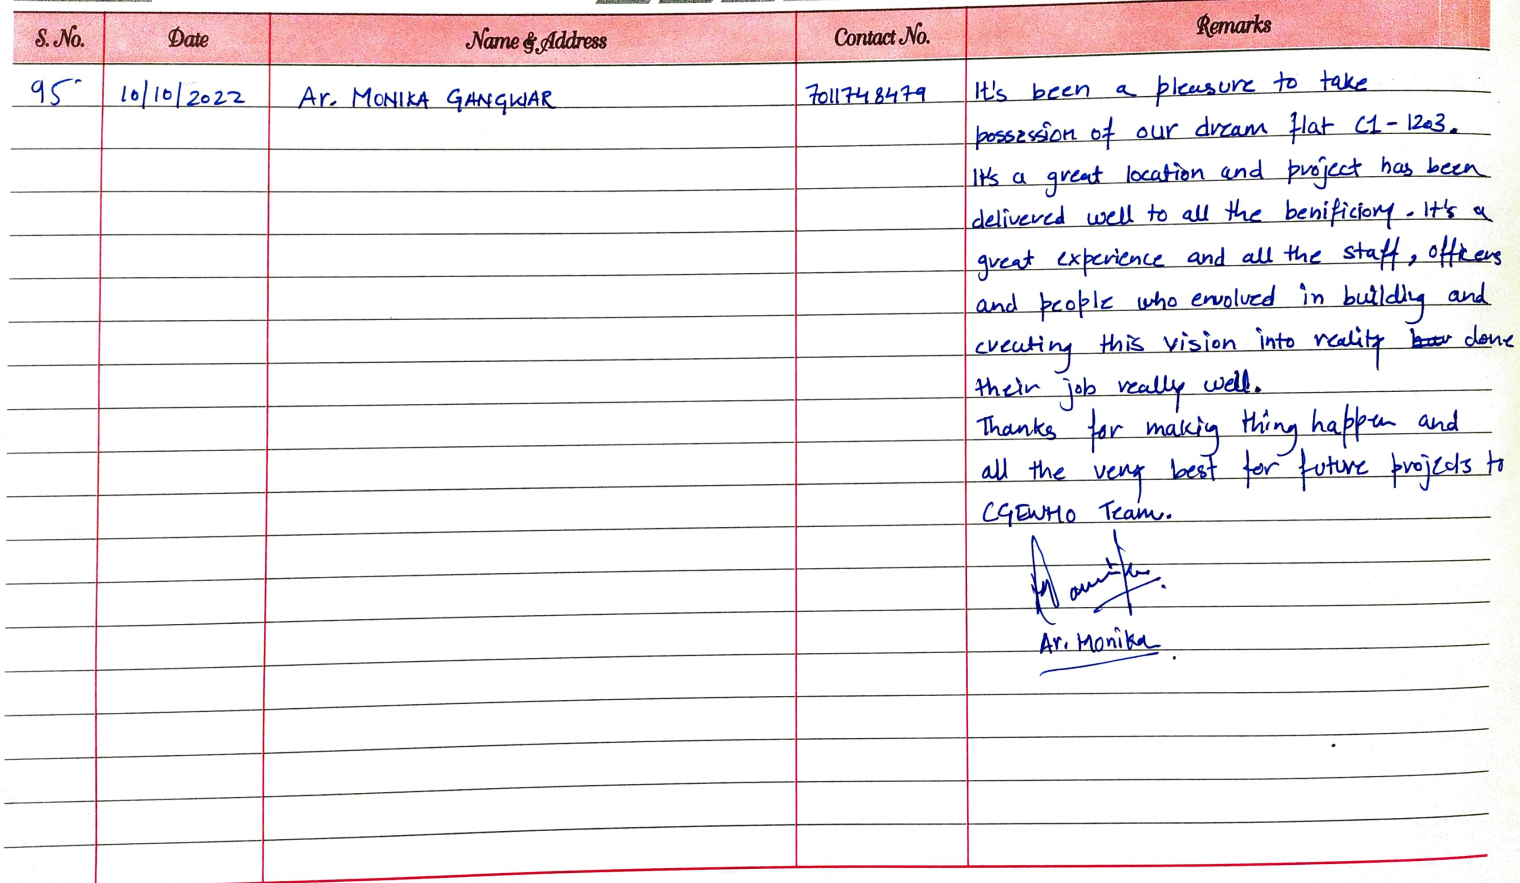 S. No. Date Name & Address Contact No. Remarks
95 10/10/2022 Ar. MONIKA GANGWAR 7011748479 It's been a pleasure to take
possession of our dream flat C1-1203.
It's a great location and project has been
delivered well to all the benificiory. It's a
great experience and all the staff, officers
and people who envolved in building and
creating this vision into reality done
their job really well.
Thanks for makig thing happen and
all the very best for future projects to
CGEWHO Team.
Ar. Monika